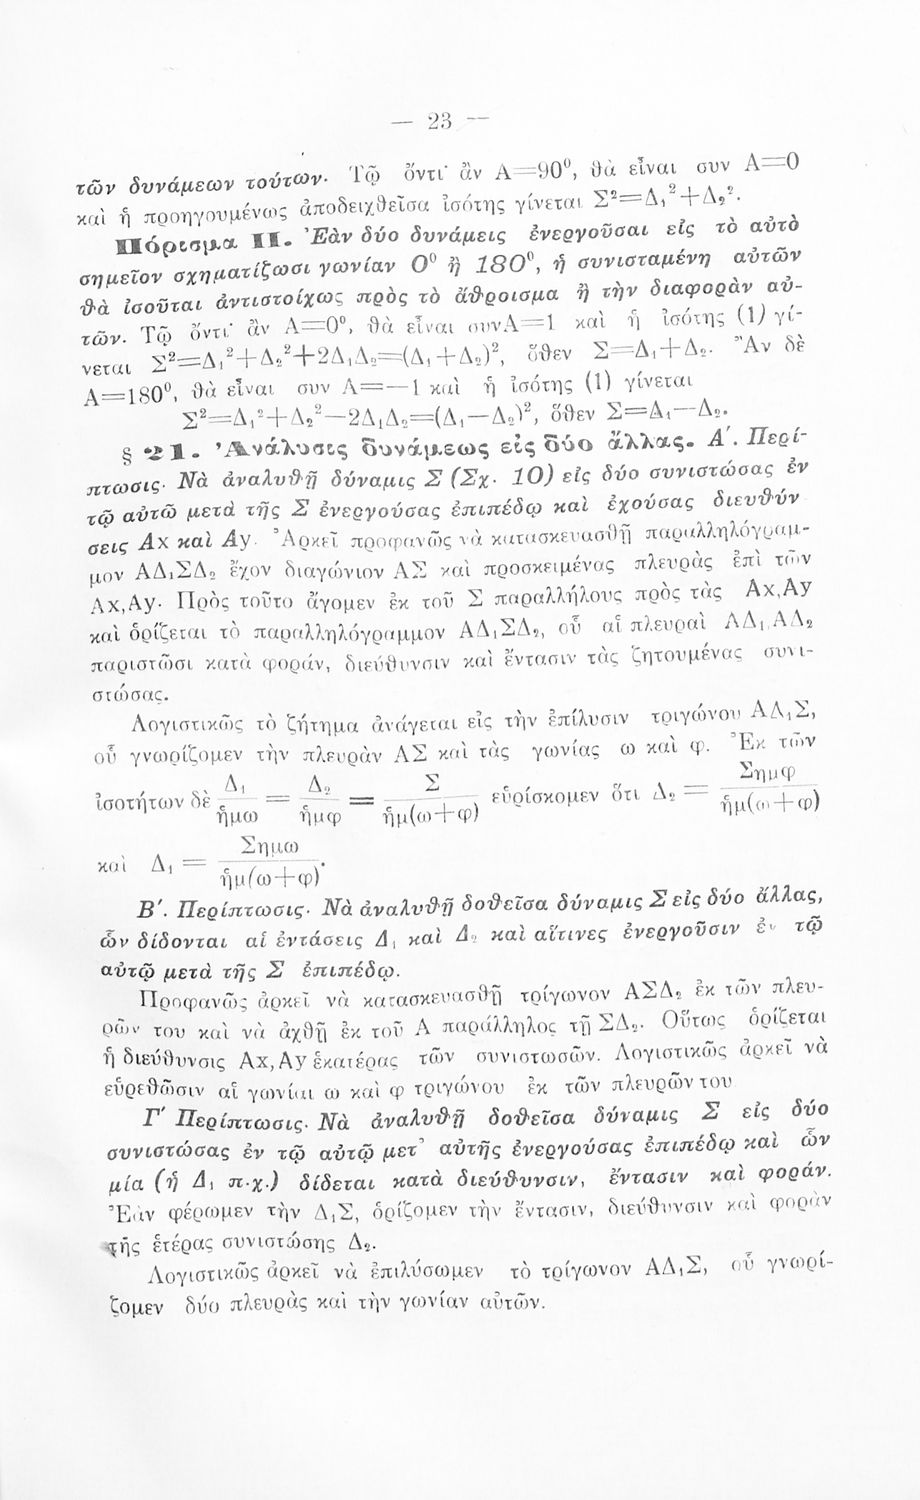 — 23 —
τῶν δυνάμεων τούτων. Τῷ ὄντι ἂν Α=90⁰, θὰ εἶναι συν Α=0
καὶ ἡ προηγουμένως ἀποδειχθεῖσα ἰσότης γίνεται Σ²=Δ₁²+Δ₂².
Πόρισμα ΙΙ. Ἐὰν δύο δυνάμεις ἐνεργοῦσαι εἰς τὸ αὐτὸ
σημεῖον σχηματίζωσι γωνίαν 0⁰ ἢ 180⁰, ἡ συνισταμένη αὐτῶν
θὰ ἰσοῦται ἀντιστοίχως πρὸς τὸ ἄθροισμα ἢ τὴν διαφορὰν αὐ-
τῶν. Τῷ ὄντι ἂν Α=0⁰, θὰ εἶναι συνΑ=1 καὶ ἡ ἰσότης (1) γί-
νεται Σ²=Δ₁²+Δ₂²+2Δ₁Δ₂=(Δ₁+Δ₂)², ὅθεν Σ=Δ₁+Δ₂. Ἂν δὲ
Α=180⁰, θὰ εἶναι συν Α=—1 καὶ ἡ ἰσότης (1) γίνεται
Σ²=Δ₁²+Δ₂²—2Δ₁Δ₂=(Δ₁—Δ₂)², ὅθεν Σ=Δ₁—Δ₂.
§ 21. Ἀνάλυσις δυνάμεως εἰς δύο ἄλλας. Α΄. Περί-
πτωσις. Νὰ ἀναλυθῇ δύναμις Σ (Σχ. 10) εἰς δύο συνιστώσας ἐν
τῷ αὐτῶ μετὰ τῆς Σ ἐνεργούσας ἐπιπέδῳ καὶ ἐχούσας διευθύν
σεις Αx καὶ Αy. Ἀρκεῖ προφανῶς νὰ κατασκευασθῇ παραλληλόγραμ-
μον ΑΔ₁ΣΔ₂ ἔχον διαγώνιον ΑΣ καὶ προσκειμένας πλευρὰς ἐπὶ τῶν
Αx,Αy. Πρὸς τοῦτο ἄγομεν ἐκ τοῦ Σ παραλλήλους πρὸς τὰς Αx,Αy
καὶ ὁρίζεται τὸ παραλληλόγραμμον ΑΔ₁ΣΔ₂, οὗ αἱ πλευραὶ ΑΔ₁ ΑΔ₂
παριστῶσι κατὰ φοράν, διεύθυνσιν καὶ ἔντασιν τὰς ζητουμένας συνι-
στώσας.
Λογιστικῶς τὸ ζήτημα ἀνάγεται εἰς τὴν ἐπίλυσιν τριγώνου ΑΔ₁Σ,
οὗ γνωρίζομεν τὴν πλευρὰν ΑΣ καὶ τὰς γωνίας ω καὶ φ. Ἐκ τῶν
ἰσοτήτων δὲ Δ₁/ἡμω = Δ₂/ἡμφ = Σ/ἡμ(ω+φ) εὑρίσκομεν ὅτι Δ₂ = Σημφ/ἡμ(ω+φ)
καὶ Δ₁ = Σημω/ἡμ(ω+φ).
Β΄. Περίπτωσις. Νὰ ἀναλυθῇ δοθεῖσα δύναμις Σ εἰς δύο ἄλλας,
ὧν δίδονται αἱ ἐντάσεις Δ₁ καὶ Δ₂ καὶ αἵτινες ἐνεργοῦσιν ἐν τῷ
αὐτῷ μετὰ τῆς Σ ἐπιπέδῳ.
Προφανῶς ἀρκεῖ νὰ κατασκευασθῇ τρίγωνον ΑΣΔ₂ ἐκ τῶν πλευ-
ρῶν του καὶ νὰ ἀχθῇ ἐκ τοῦ Α παράλληλος τῇ ΣΔ₂. Οὕτως ὁρίζεται
ἡ διεύθυνσις Αx,Αy ἑκατέρας τῶν συνιστωσῶν. Λογιστικῶς ἀρκεῖ νὰ
εὑρεθῶσιν αἱ γωνίαι ω καὶ φ τριγώνου ἐκ τῶν πλευρῶν του
Γ΄ Περίπτωσις. Νὰ ἀναλυθῇ δοθεῖσα δύναμις Σ εἰς δύο
συνιστώσας ἐν τῷ αὐτῷ μετ᾽ αὐτῆς ἐνεργούσας ἐπιπέδῳ καὶ ὧν
μία (ἡ Δ₁ π.χ.) δίδεται κατὰ διεύθυνσιν, ἔντασιν καὶ φοράν.
Ἐὰν φέρωμεν τὴν Δ₁Σ, ὁρίζομεν τὴν ἔντασιν, διεύθυνσιν καὶ φορὰν
τῆς ἑτέρας συνιστώσης Δ₂.
Λογιστικῶς ἀρκεῖ νὰ ἐπιλύσωμεν τὸ τρίγωνον ΑΔ₁Σ, οὗ γνωρί-
ζομεν δύο πλευρὰς καὶ τὴν γωνίαν αὐτῶν.